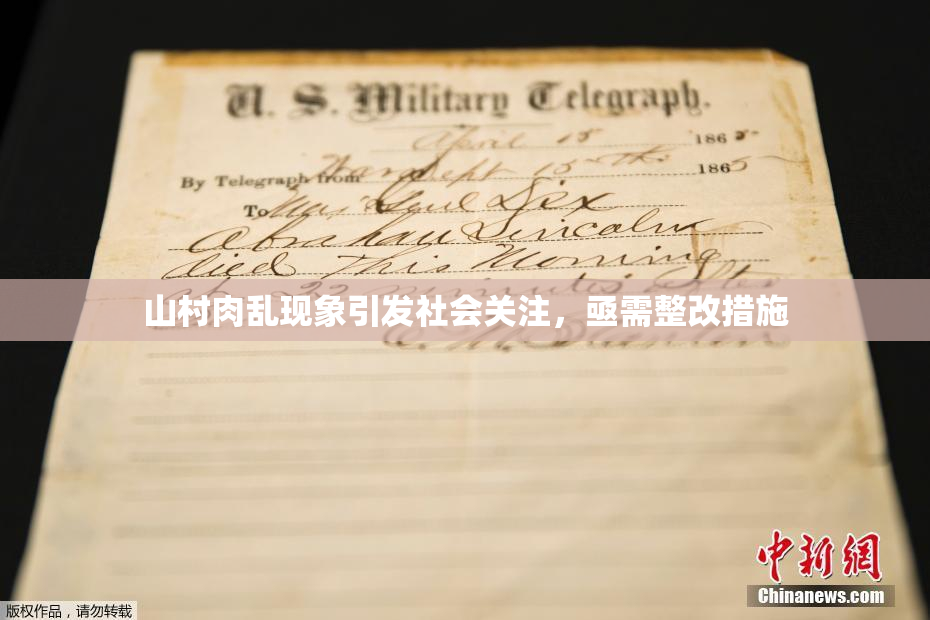 U. S. Military Telegraph.
April 15 1865
By Telegraph from War Dept 15th 1865
To Maj Genl Dix
Abraham Lincoln
died This Morning
at 22 minutes after
山村肉乱现象引发社会关注，亟需整改措施
E. M. Stanton
中新網
Chinanews.com
版权作品，请勿转载